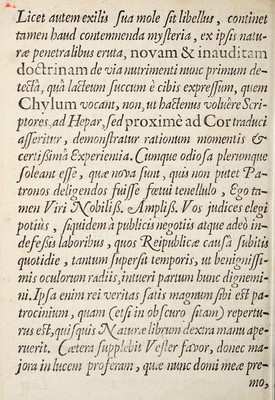 Licet autem exilis sua mole sit libellus, continet
tamen haud contemnenda mysteria, ex ipsis natu-
ræ penetralibus eruta, novam & inauditam
doctrinam de via nutrimenti nunc primum de-
tectâ, quâ lacteum succum è cibis expressum, quem
Chylum vocant, non, ut hactenus voluêre Scri-
ptores, ad Hepar, sed proximè ad Cor traduci
asseritur, demonstratur rationum momentis &
certissimâ Experientia. Cumque odiosa plerumque
soleant esse, quæ nova sunt, quis non putet Pa-
tronos deligendos fuisse fœtui tenellulo, Ego ta-
men Viri Nobiliß. Ampliß. Vos judices elegi
potiùs, siquidem à publicis negotiis atque adeò in-
defessis laboribus, quos Reipublicæ causâ subitis
quotidie, tantum supersit temporis, ut benignissi-
mis oculorum radiis, intueri partum hunc dignemi-
ni. Ipsa enim rei veritas satis magnum sibi est pa-
trocinium, quam (etsi in obscuro sitam) repertu-
rus est, quisquis Naturæ librum dextra manu ape-
ruerit. Cætera supplebit Vester favor, donec ma-
jora in lucem proferam, quæ nunc domi meæ pre-
mo,